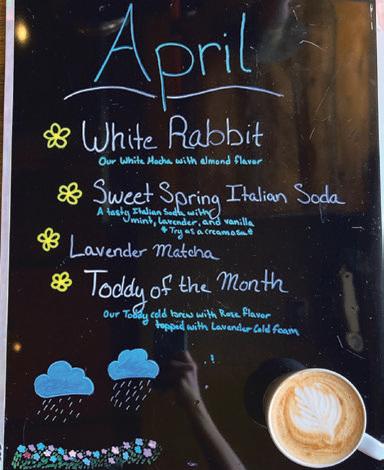 April
White Rabbit
Our White Mocha with almond flavor
Sweet Spring Italian Soda
A tasty Italian Soda with
mint, lavender, and vanilla
* Try as a creamosa *
Lavender Matcha
Toddy of the Month
Our Toddy cold brew with Rose flavor
topped with Lavender Cold Foam